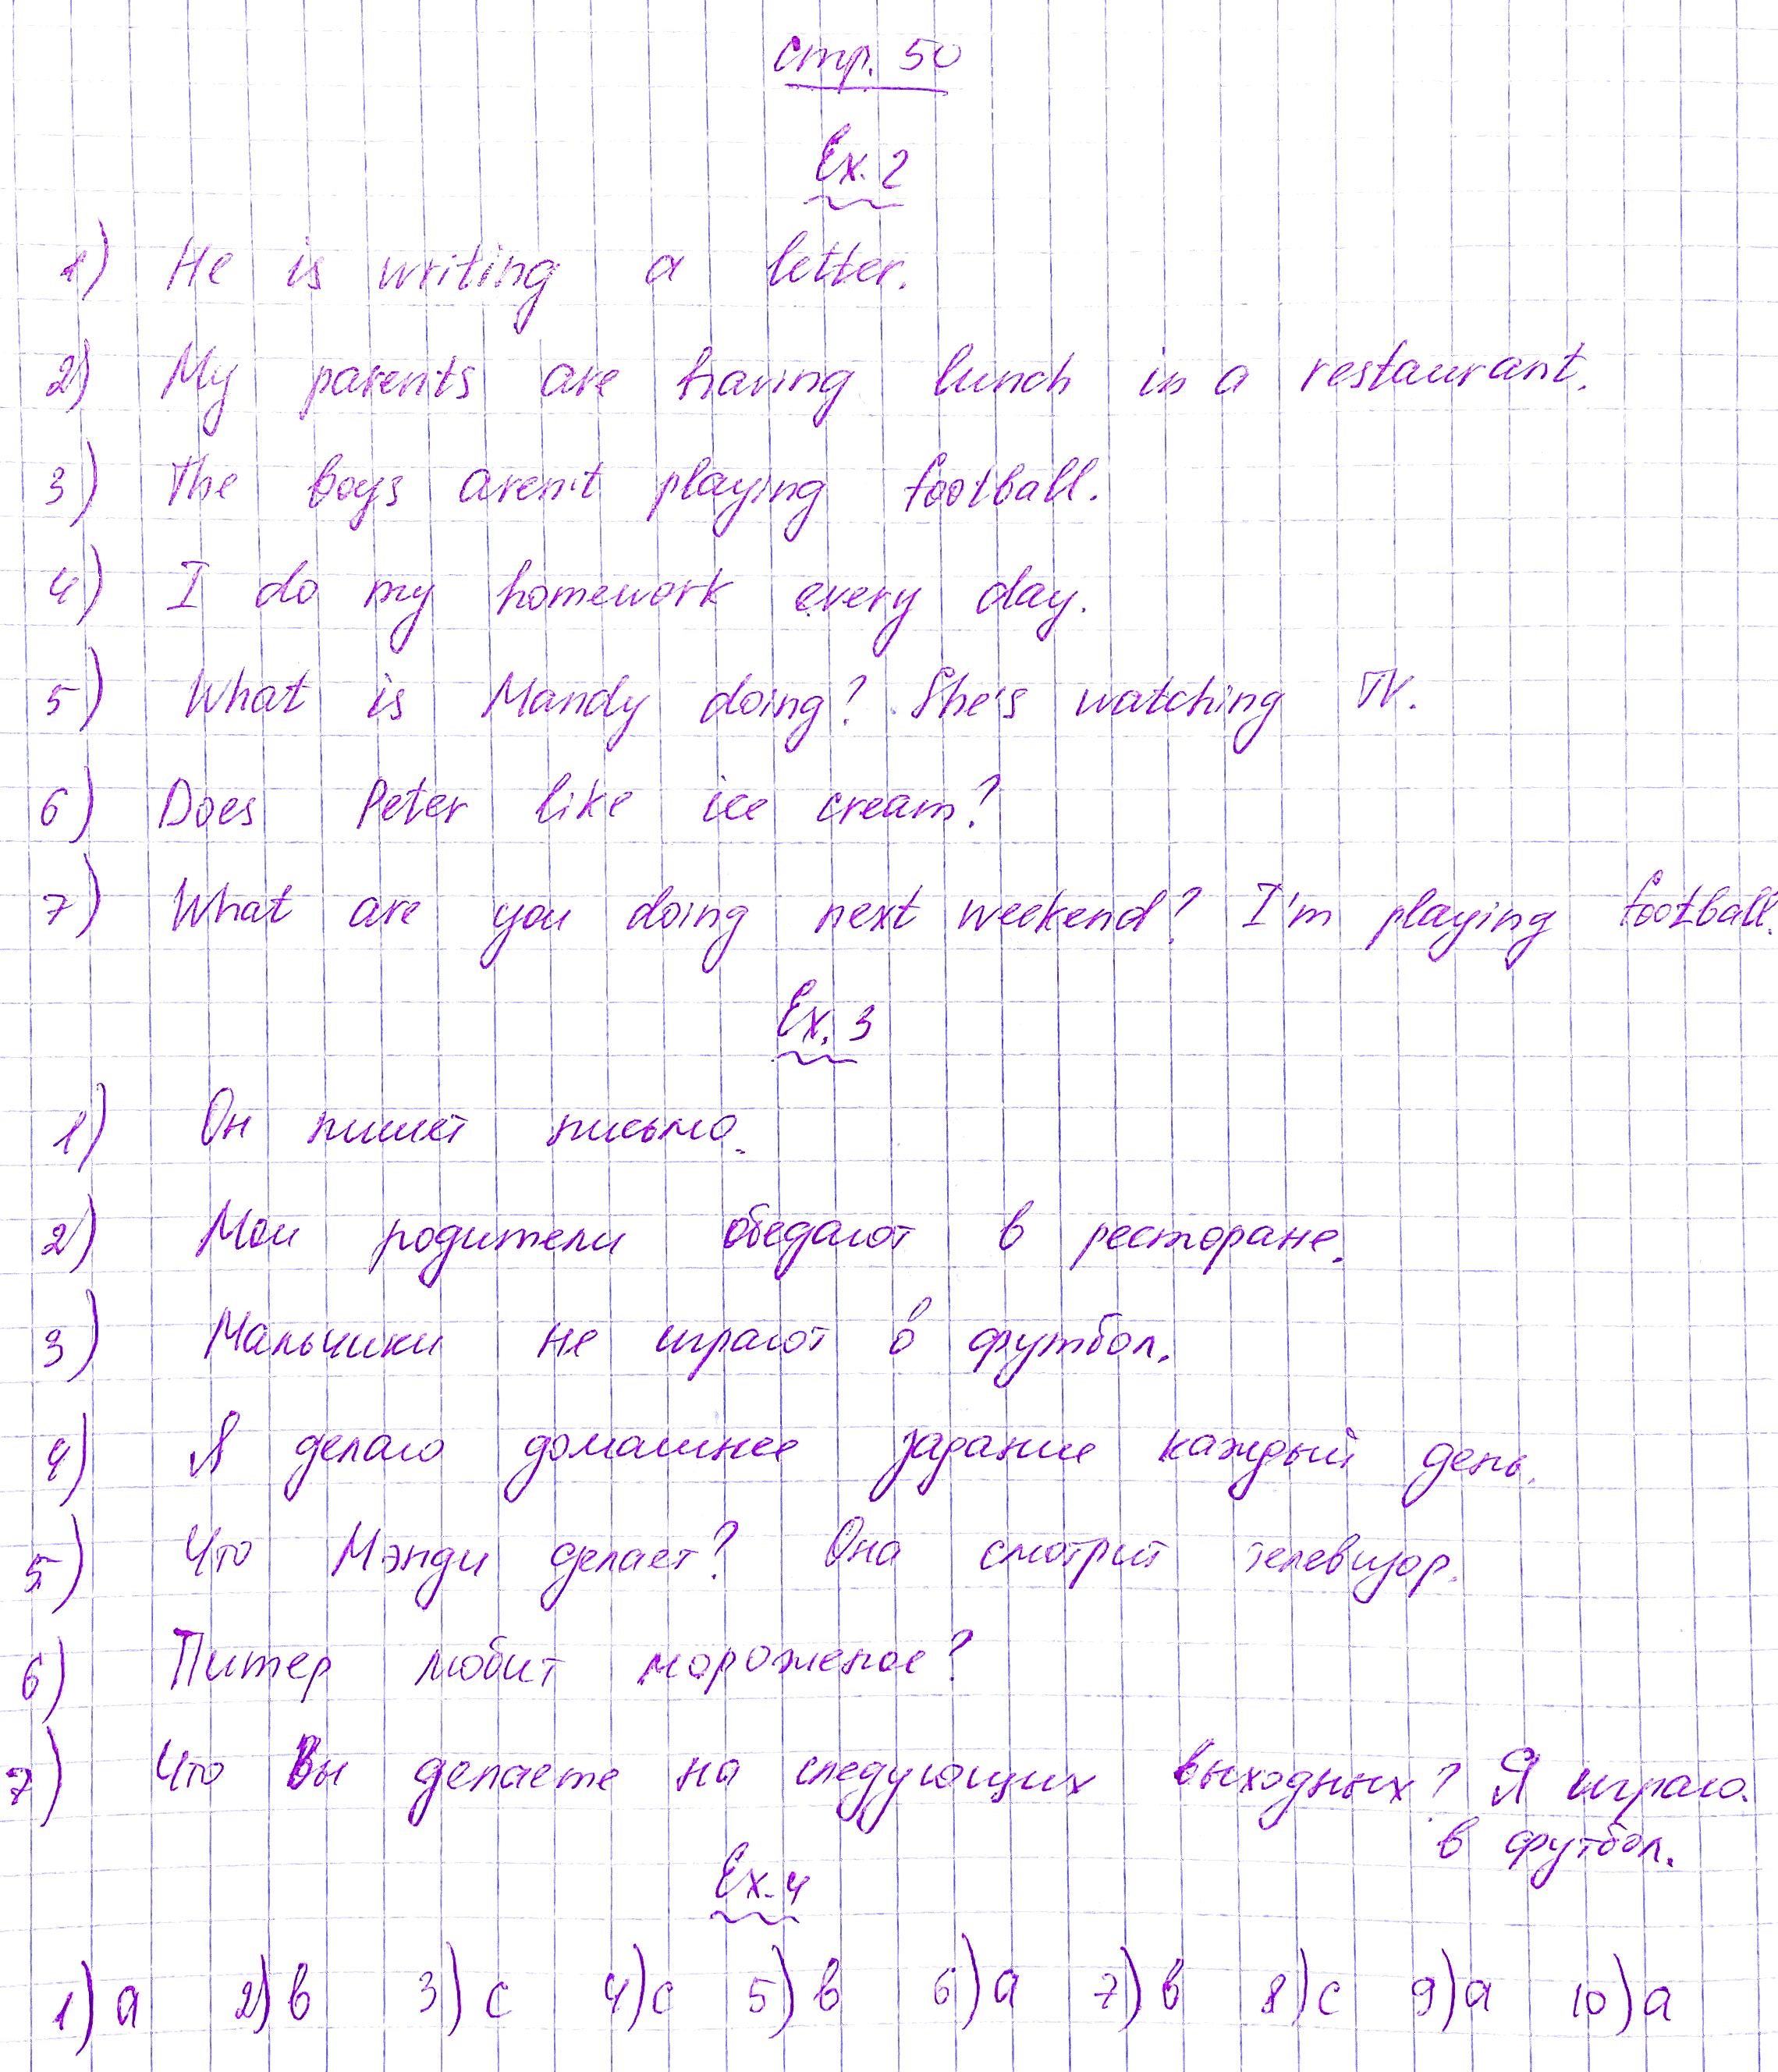 стр. 50
Ex. 2
1) He is writing a letter.
2) My parents are having lunch in a restaurant.
3) The boys aren't playing football.
4) I do my homework every day.
5) What is Mandy doing? She's watching TV.
6) Does Peter like ice cream?
7) What are you doing next weekend? I'm playing football.
Ex. 3
1) Он пишет письмо.
2) Мои родители обедают в ресторане.
3) Мальчики не играют в футбол.
4) Я делаю домашнее задание каждый день.
5) Что Мэнди делает? Она смотрит телевизор.
6) Питер любит мороженое?
7) Что Вы делаете на следующих выходных? Я играю
в футбол.
Ex. 4
1) a 2) b 3) c 4) c 5) b 6) a 7) b 8) c 9) a 10) a